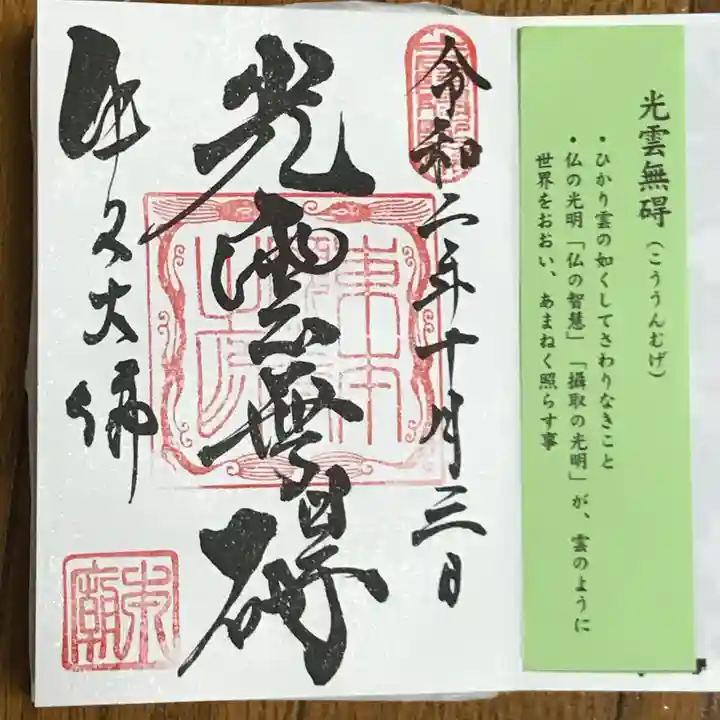 光雲無碍（こううんむげ）
・ひかり雲の如くしてさわりなきこと
・仏の光明「仏の智慧」「攝取の光明」が、雲のように
世界をおおい、あまねく照らす事
令和二年十月三日
光雲無碍
牛久大佛